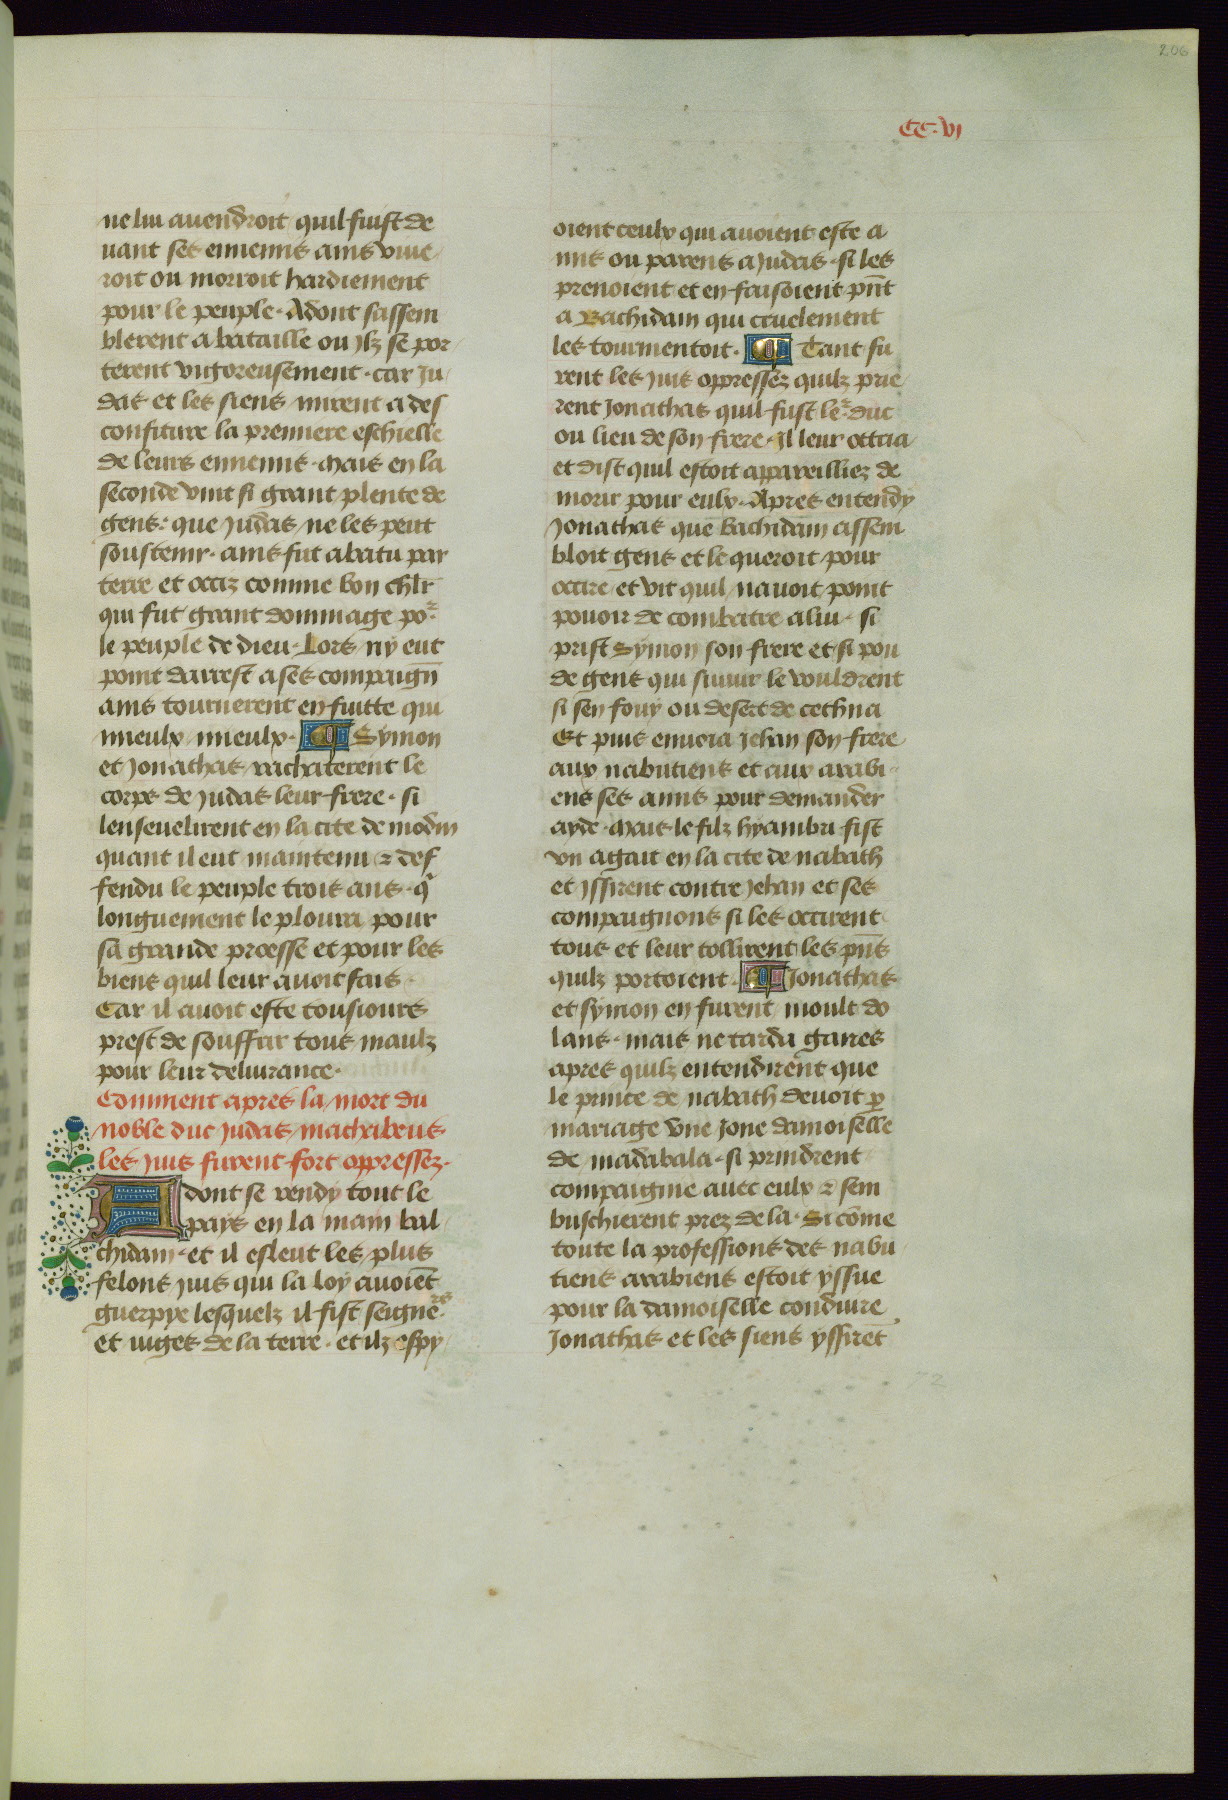 206
CC·VI
ne lui auendroit quil fuist de
uant ses ennemis ains viue
roit ou morroit hardiement
pour le peuple· Adont sassem
blerent a bataille ou ilz se por
terent vigoreusement· car Ju
das et les siens mirent a des
confiture la premiere eschielle
de leurs ennemis· Mais en la
seconde vint si grant plente de
gens: que Judas ne les peut
soustenir· ains fut abatu par
terre et occiz comme bon chlr̄
qui fut grant dommage poʳ
le peuple de dieu· Lors ny eut
point darrest a ses compaigñ
ains tournerent en fuitte qui
mieulx mieulx· ¶ Symon
et Jonathas rachaterent le
corps de Judas leur frere· si
lenseuelirent en la cite de modin
quant il eut maintenu ⁊ def
fendu le peuple trois ans· qͥ
longuement le ploura pour
sa grande proesse et pour les
biens quil leur auoit fais
Car il auoit este tousiours
prest de souffrir tous maulz
pour leur deliurance·
Comment apres la mort du
noble duc Judas machabeus
les juis furent fort oppressez·
Adont se rendy tout le
pays en la main bal
chidam· et il esleut les plus
felons juis qui la loy auoiēt
guerpye lesquelz il fist seigneʳˢ·
et iuges de la terre· et ilz espy
oient ceulx qui auoient este a
mis ou parens a Judas· si les
prenoient et en faisoient pñt
a Bachidam qui cruelement
les tourmentoit· ¶ Tant fu
rent les juis oppressez quilz prie
rent Jonathas quil fust leʳ duc
ou lieu de son frere· Il leur ottria
et dist quil estoit appareilliez de
morir pour eulx· Apres entendy
Jonathas que bachidam assem
bloit gens et le queroit pour
occire· et vit quil nauoit point
pouoir de combatre a lui· si
prist Symon son frere et si pou
de gens qui siuuir le vouldrent
si sen fouy ou desert de techna
Et puis enuoia jehan son frere
aux nabutiens et aux arabi
ens ses amis pour demander
ayde· Mais le filz hyambri fist
vn agait en la cite de nabath
et yssirent contre jehan et ses
compaignons si les occirent
tous et leur tollirent les pñs
quilz portoient· ¶ Jonathas
et symon en furent moult do
lans· mais ne tarda gaires
apres quilz entendirent que
le prince de nabath deuoit ꝑ
mariage vne jone damoiselle
de madabala· si prindrent
compaignie auec eulx ⁊ sem
buschierent prez de la· Si cōme
toute la professions des nabu
tiens arabiens estoit yssue
pour la damoiselle conduire
Jonathas et les siens yssirēt
72